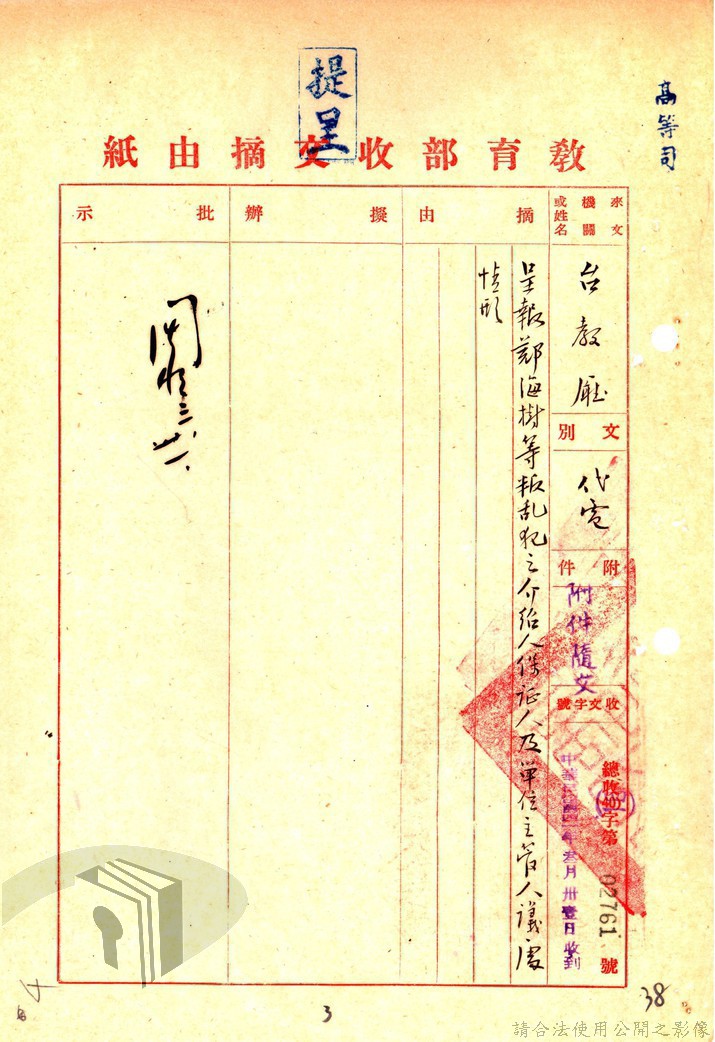 高等司
提呈
教育部收文摘由紙
來文機關或姓名
台教廳
文別
代電
附件
附件隨文
收文字號
總收(40)字第 02761 號
年叁月卅壹日收到
摘由
呈報鄭海樹等叛乱犯之介紹人保证人及单位主管人議處
情形
擬辦
批示
三、卅一、
3
38
請合法使用公開之影像